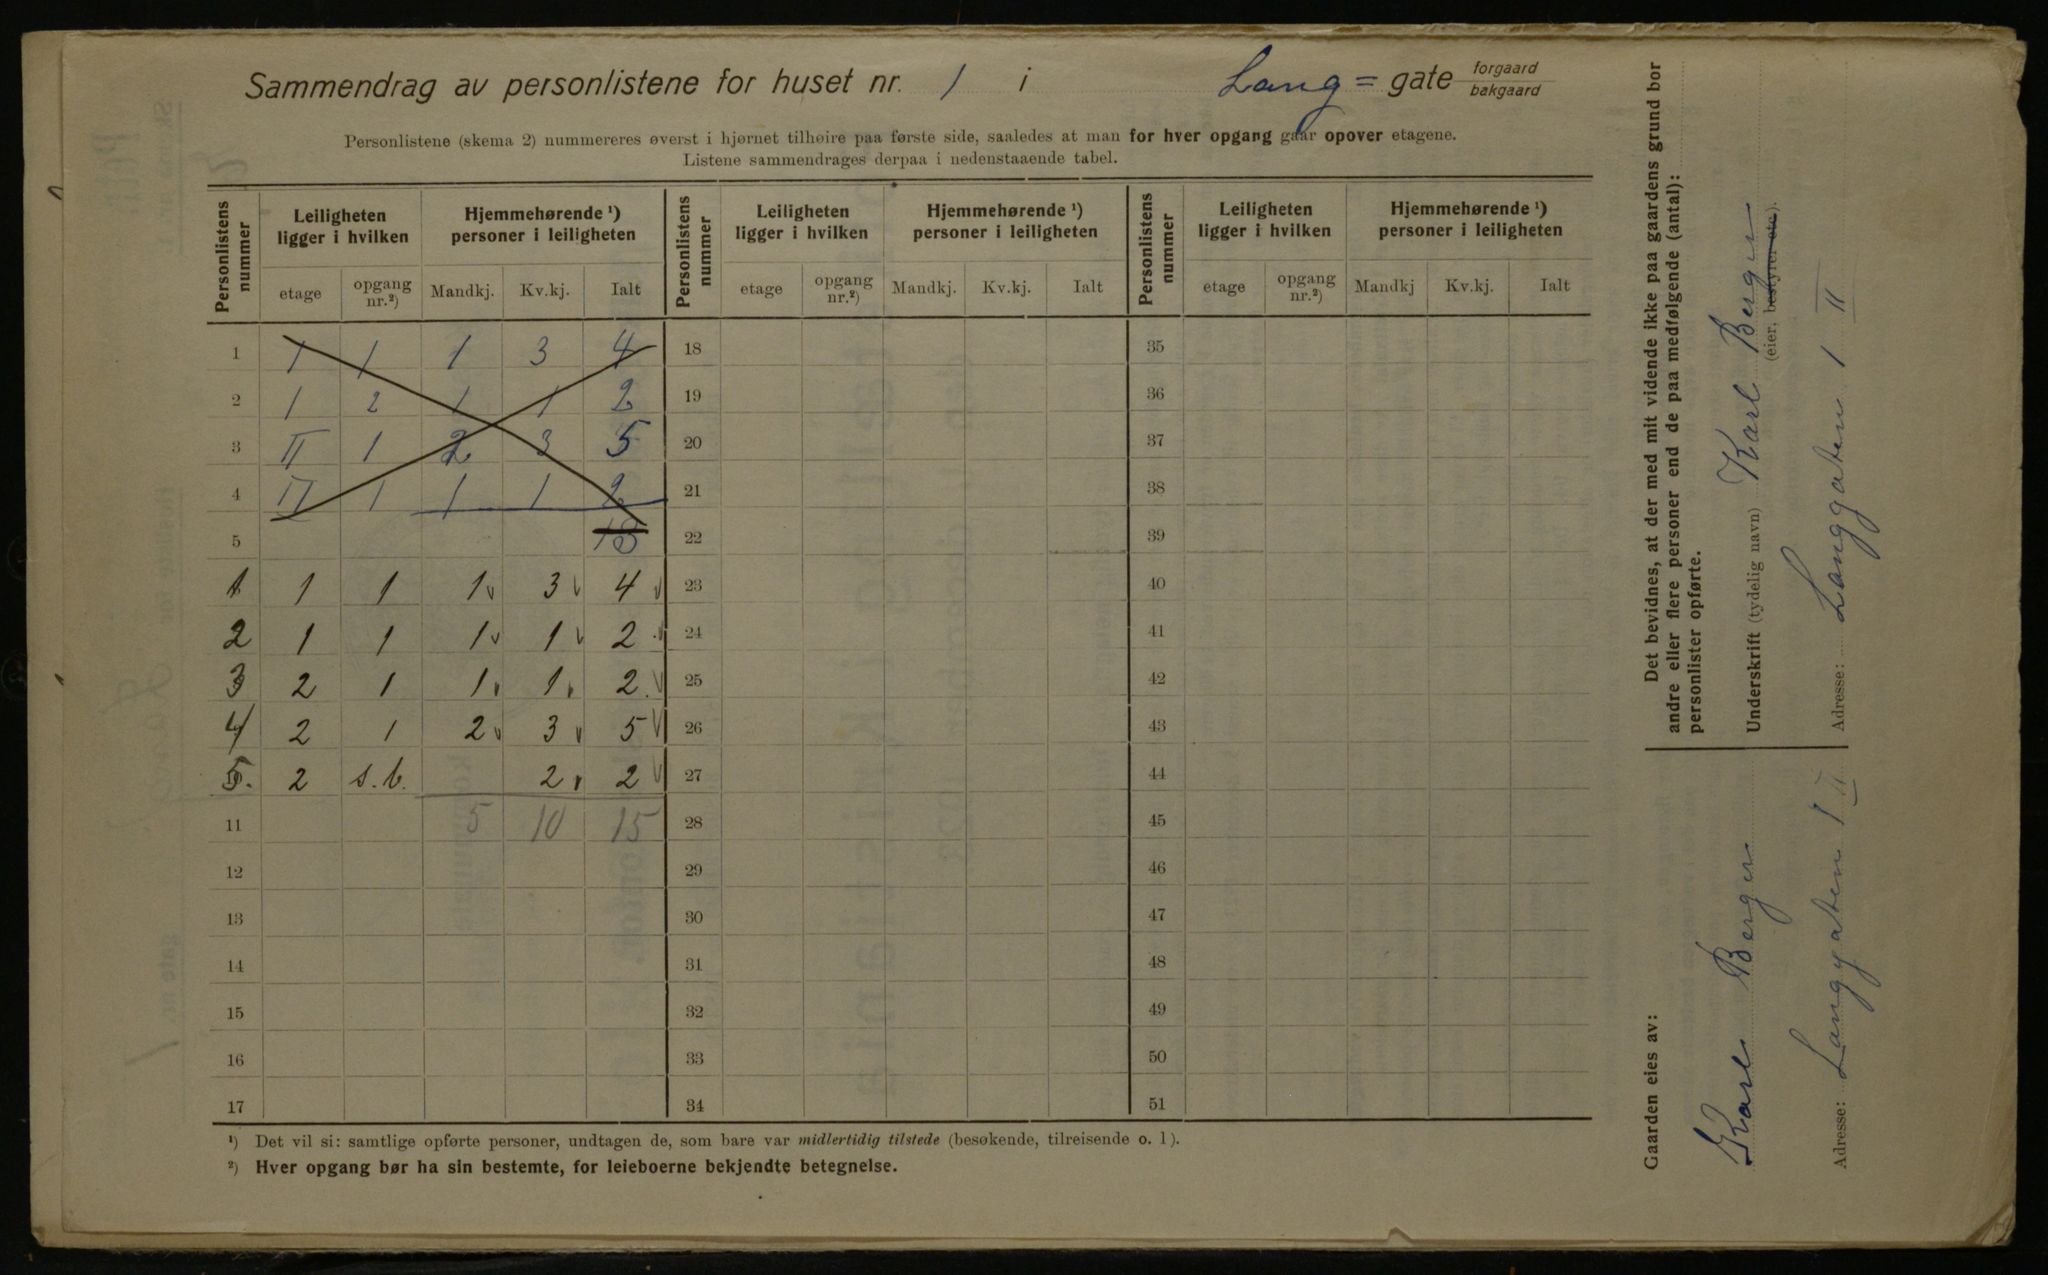 Sammendrag av personlistene for huset nr. 1 i Lang= gate forgaard bakgaard
Personlistene (skema 2) nummereres øverst i hjørnet tilhøire paa første side, saaledes at man for hver opgang gaar opover etagene.
Listene sammendrages derpaa i nedenstaaende tabel.
Personlistens nummer
Leiligheten ligger i hvilken
Hjemmehørende ¹) personer i leiligheten
Personlistens nummer
Leiligheten ligger i hvilken
Hjemmehørende ¹) personer i leiligheten
Personlistens nummer
Leiligheten ligger i hvilken
Hjemmehørende ¹) personer i leiligheten
etage opgang nr.²) Mandkj. Kv.kj. Ialt etage opgang nr.²) Mandkj. Kv.kj. Ialt etage opgang nr.²) Mandkj Kv.kj. Ialt
1 1 1 1 3 4 18 35
2 1 2 1 1 2 19 36
3 II 1 2 3 5 20 37
4 II 1 1 1 2 21 38
5 13 22 39
1 1 1 1 3 4 23 40
2 1 1 1 1 2 24 41
3 2 1 1 1 2 25 42
4 2 1 2 3 5 26 43
5. 2 s.b. 2 2 27 44
11 5 10 15 28 45
12 29 46
13 30 47
14 31 48
15 32 49
16 33 50
17 34 51
¹) Det vil si: samtlige opførte personer, undtagen de, som bare var midlertidig tilstede (besøkende, tilreisende o. l).
²) Hver opgang bør ha sin bestemte, for leieboerne bekjendte betegnelse.
Det bevidnes, at der med mit vidende ikke paa gaardens grund bor
andre eller flere personer end de paa medfølgende (antal):
personlister opførte.
Underskrift (tydelig navn) Karl Bergen
(eier, bestyrer etc).
Adresse: Langgaten 1 II
Gaarden eies av:
Karl Bergen
Adresse: Langgaten 1 II